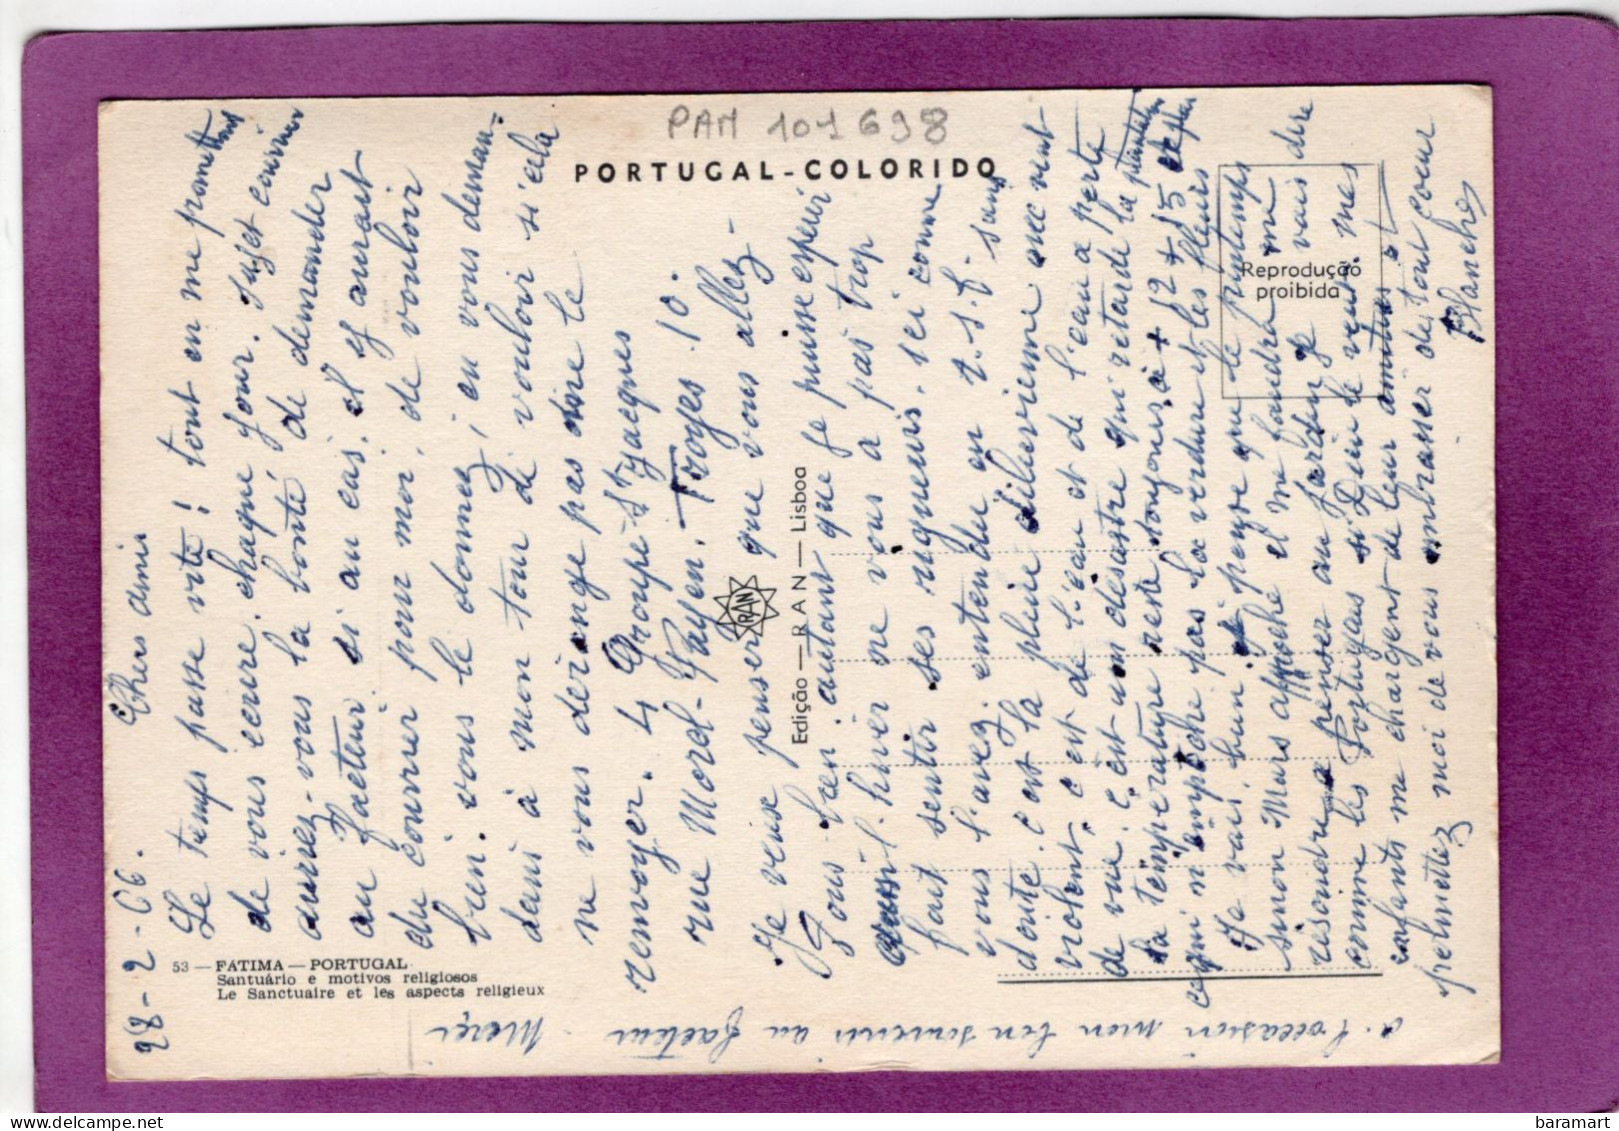 PAM 101698
PORTUGAL - COLORIDO
Reprodução
proibida
Edição — RAN — Lisboa
RAN
53 — FATIMA — PORTUGAL
Santuário e motivos religiosos
Le Sanctuaire et les aspects religieux
28-2-66. Chers amis
Le temps passe vite! tout en me promettant
de vous ecrire chaque jour. Sujet courrier
auriez-vous la bonté de demander
au facteur si au cas, il y aurait
du courrier pour moi, de vouloir
bien vous le donner, en vous deman-
dant à mon tour de vouloir si cela
ne vous dérange pas de me le
renvoyer. 4 Groupe St Jacques
rue Morel-Payen. Troyes. 10.
Je veux penser que vous allez
tous bien autant que je puisse espérer
l'hiver ne vous a pas trop
fait sentir ses rigueurs. ici comme
vous l'avez entendu en t.s.f. sans
doute c'est la pluie diluvienne avec vent
violent, c'est de l'eau et de l'eau a perte
de vue. C'est un désastre qui retarde la plantation
la température reste toujours à + 12 + 15
ce qui n'empêche pas la verdure et les fleurs
Je vais bien peut-être que le printemps
sinon Mars approche et me faudra me
résoudre a penser au jardin je vais dire
comme les Portugais si Dieu le veut. mes
enfants me chargent de leur amitiés et
permettez moi de vous embrasser de tout coeur
Blanche
a l'occasion mon bon souvenir au facteur. Merci